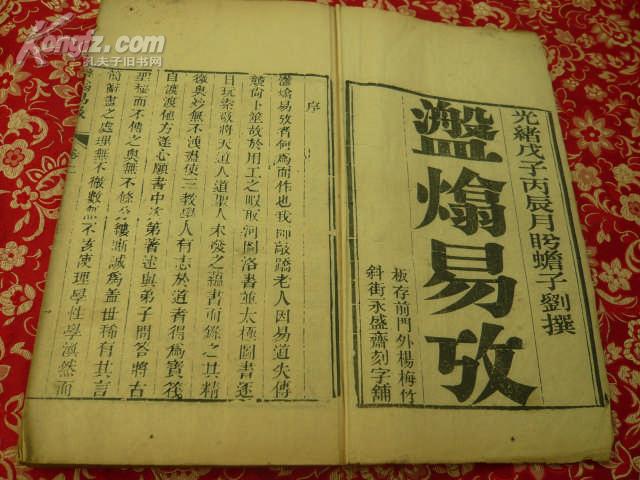 光緒戊子丙辰月盱蟾子劉撰
盤熻易攷
板存前門外楊梅竹
斜街永盛齋刻字舖
序
盤熻易攷者何爲而作也我師敲蹻老人因易道失傳
盡尙卜筮故於用工之暇取河圖洛書並太極圖書逐
日玩索敬將天道人道聖人未發之蘊書而錄之其精
微奥妙無不洩盡使三敎學人有志於道者得爲寶筏
自渡渡他方遂心願書中次弟著述與弟子問答將古
聖秘而不傳之與無不條分縷晰誠爲蓋世稀有其言
簡辭書之處理無不徹數無不該使理學性學渙然而
Kongfz.com
孔夫子旧书网